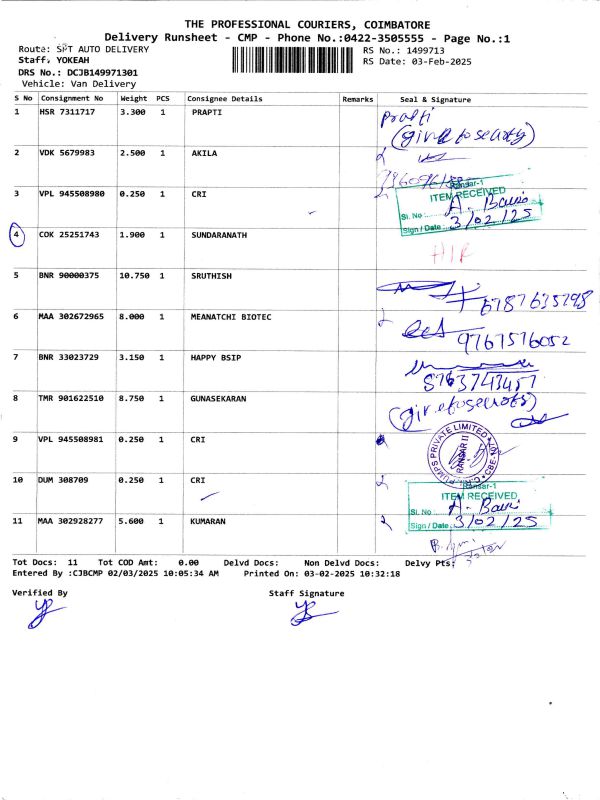 THE PROFESSIONAL COURIERS, COIMBATORE
Delivery Runsheet - CMP - Phone No.:0422-3505555 - Page No.:1
Route: SPT AUTO DELIVERY
RS No.: 1499713
Staff. YOKEAH
RS Date: 03-Feb-2025
DRS No.: DCJB149971301
Vehicle: Van Delivery
S No Consignment No Weight PCS Consignee Details Remarks Seal & Signature
1 HSR 7311717 3.300 1 PRAPTI
2 VDK 5679983 2.500 1 AKILA
3 VPL 945508980 0.250 1 CRI
Ransar-1
ITEM RECEIVED
Sl. No :
Sign / Date : 3/02/25
4 COK 25251743 1.900 1 SUNDARANATH
5 BNR 90000375 10.750 1 SRUTHISH
6 MAA 302672965 8.000 1 MEANATCHI BIOTEC
9767576052
7 BNR 33023729 3.150 1 HAPPY BSIP
8 TMR 901622510 8.750 1 GUNASEKARAN
9 VPL 945508981 0.250 1 CRI
PUMPS PRIVATE LIMITED
RANSAR II
10 DUM 308709 0.250 1 CRI
Ransar-1
ITEM RECEIVED
Sl. No :
Sign / Date : 3/02/25
11 MAA 302928277 5.600 1 KUMARAN
Tot Docs: 11 Tot COD Amt: 0.00 Delvd Docs: Non Delvd Docs: Delvy Pts:
Entered By :CJBCMP 02/03/2025 10:05:34 AM Printed On: 03-02-2025 10:32:18
Verified By Staff Signature